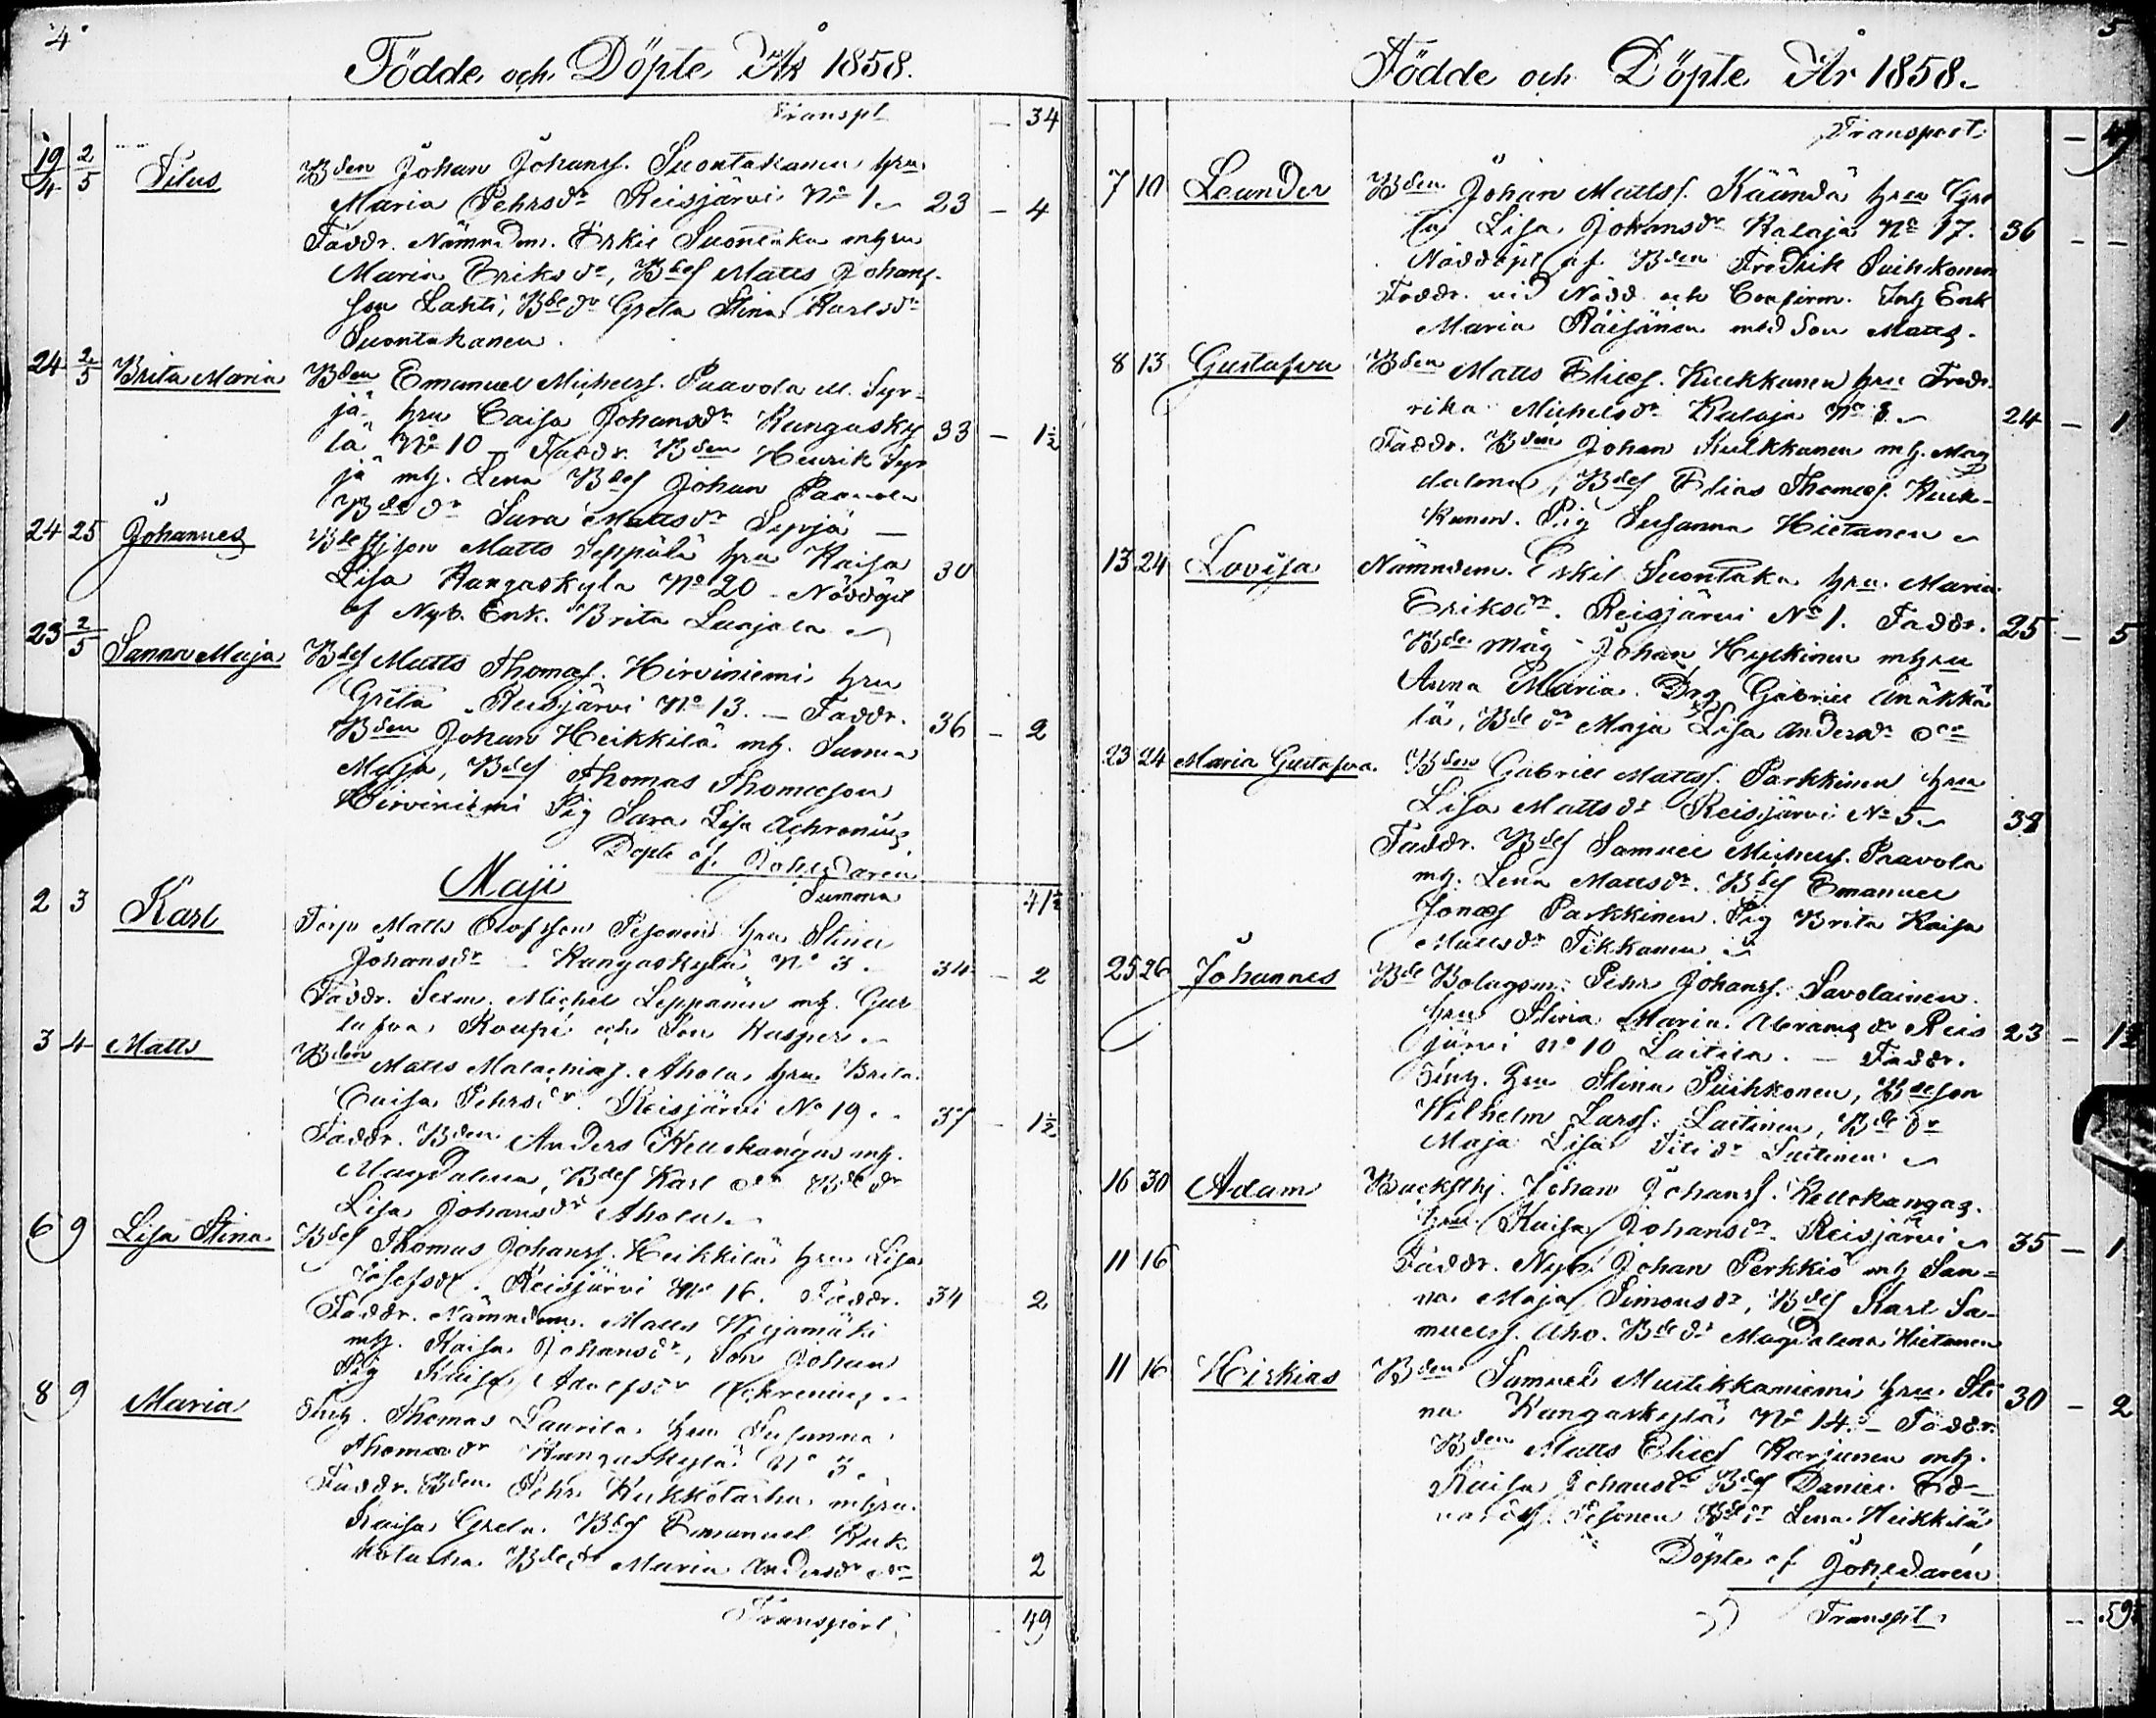 4
Födde och Döpte År 1858.
Transpt — 34
19/4 2/5 Titus Bden Johan Johanss. Suontakanen hru
Maria Pehrsdr Reisjärvi No 1. 23 — 4
Faddr. Nämndem. Eskil Suontaka mhru
Maria Eriksdr, Bdes Matts Johans
son Lahti, Bdedr Greta Stina Karlsdr
Suontakanen.
24 2/5 Brita Maria Bden Emanuel Michelss. Paavola
jä hru Caisa Johansdr Kangasky 33 — 1½
lä No 10 Faddr. Bden Henrik
jä mh. Lena Bdes Johan Paavola
Bdedr Sara Mattsdr
24 25 Johannes Matts Seppälä hru Kaisa 30
Lisa Kangaskylä No 20 - Nöddöpt
af Nyb. Enk. Brita
23 2/5 Sanna Maja Bdes Matts Thomas. Hirviniemi hru
Greta Reisjärvi No 13. — Faddr. 36 — 2
Bden Johan Heikkilä mh. Sanna
Maja, Bdes Thomas Thomasson
Hirviniemi Pig Sara Lisa Achrenius
Döpte af Joh: Daren
Maji
Summa 41½
2 3 Karl Torp Matts Olofsson Pesonen hru Stina
Johansdr Kangaskylä No 3. 34 — 2
Faddr. Michel Leppänen mh. Gus
tafva Koupi och Son Kasper
3 4 Matts Bden Matts Malachias. Ahola hru Brita
Caisa Pehrsdr. Reisjärvi No 19. 37 — 1½
Faddr. Bden Anders Kellokangas mh.
Magdalena, Bdes Karl Bdedr
Lisa Johansdr Ahola
6 9 Lisa Stina Bdes Thomas Johanss. Heikkilä hru Lisa
Josefsdr. Reisjärvi No 16. Faddr. 34 2
Faddr. Nämndem. Matts
mh. Kaisa Johansdr, Son Johan
Pig Kaisa Adolfsdr Achrenius
8 9 Maria Inh. Thomas Laurila hru Susanna
Thomasdr Kangaskylä No 3.
Faddr. Bden Pehr Kukkotarha mhru
Kaisa Greta. Bdes Emanuel Kuk
kotarha Bdedr Maria Andersdr 2
Transport 49
5
Födde och Döpte År 1858.
Transport — 49
7 10 Leander Bden Johan Mattss. Käändä hru Gre
ta Lisa Johansdr Kalaja No 17. 36 — —
Nöddöpt af Bden Fredrik Puhkonen
Faddr. vid Nödd. och Confirm. Inh Enk
Maria Räisänen med Son Matts.
8 13 Gustafva Bden Matts Elias. Kukkanen hru Fred
rika Michelsdr Kalaja No 8. 24 — 1
Faddr. Bden Johan Kukkanen mh. Mag
dalena, Bdes Elias Thomas. Kuk-
kanen. Pig Susanna Hietanen
13 24 Lovisa Nämndem. Eskil Suontaka hru. Maria
Eriksdr. Reisjärvi No 1. Faddr. 25 — 5
Bde Måg Johan Hyckinen mhru
Anna Maria. Drg Gabriel
lä, Bdedr Maja Lisa Andersdr
23 24 Maria Gustafva. Bden Gabriel Mattss. Parkkinen hru
Lisa Mattsdr Reisjärvi No 5 38
Faddr. Bdes Samuel Michelss. Paavola
mh. Lena Mattsdr. Bdes Emanuel
Jonas Parkkinen. Pig Brita Kaisa
Mattsdr Tikkanen
25 26 Johannes Bde Bolagsm. Pehr Johanss. Savolainen
hru Stina Maria Abramsdr Reis 23 — 1½
järvi No 10 Laitila. — Faddr.
Inh. hru Stina Puhkonen, Bdeson
Wilhelm Larss. Laitinen, Bdedr
Maja Lisa Laitinen
16 30 Adam Johan Johanss. Kellokangas.
hru Kaisa Johansdr. Reisjärvi 35 — 1
11 16 Faddr. Nyb. Johan Perkkiö mh San-
na Maja Simonsdr, Bdes Karl Sa-
muelss. Aho. Bdedr Magdalena Hietanen
11 16 Hiskias Bden Samuel Mustikkaniemi hru Sti 30 — 2
na Kangaskylä No 14. — Faddr.
Bden Matts Elias Karjunen mh.
Kaisa Johansdr Bdes Daniel Ed-
Pesonen Bdedr Lena Heikkilä
Döpte af Joh: Daren
Transpt — 59½